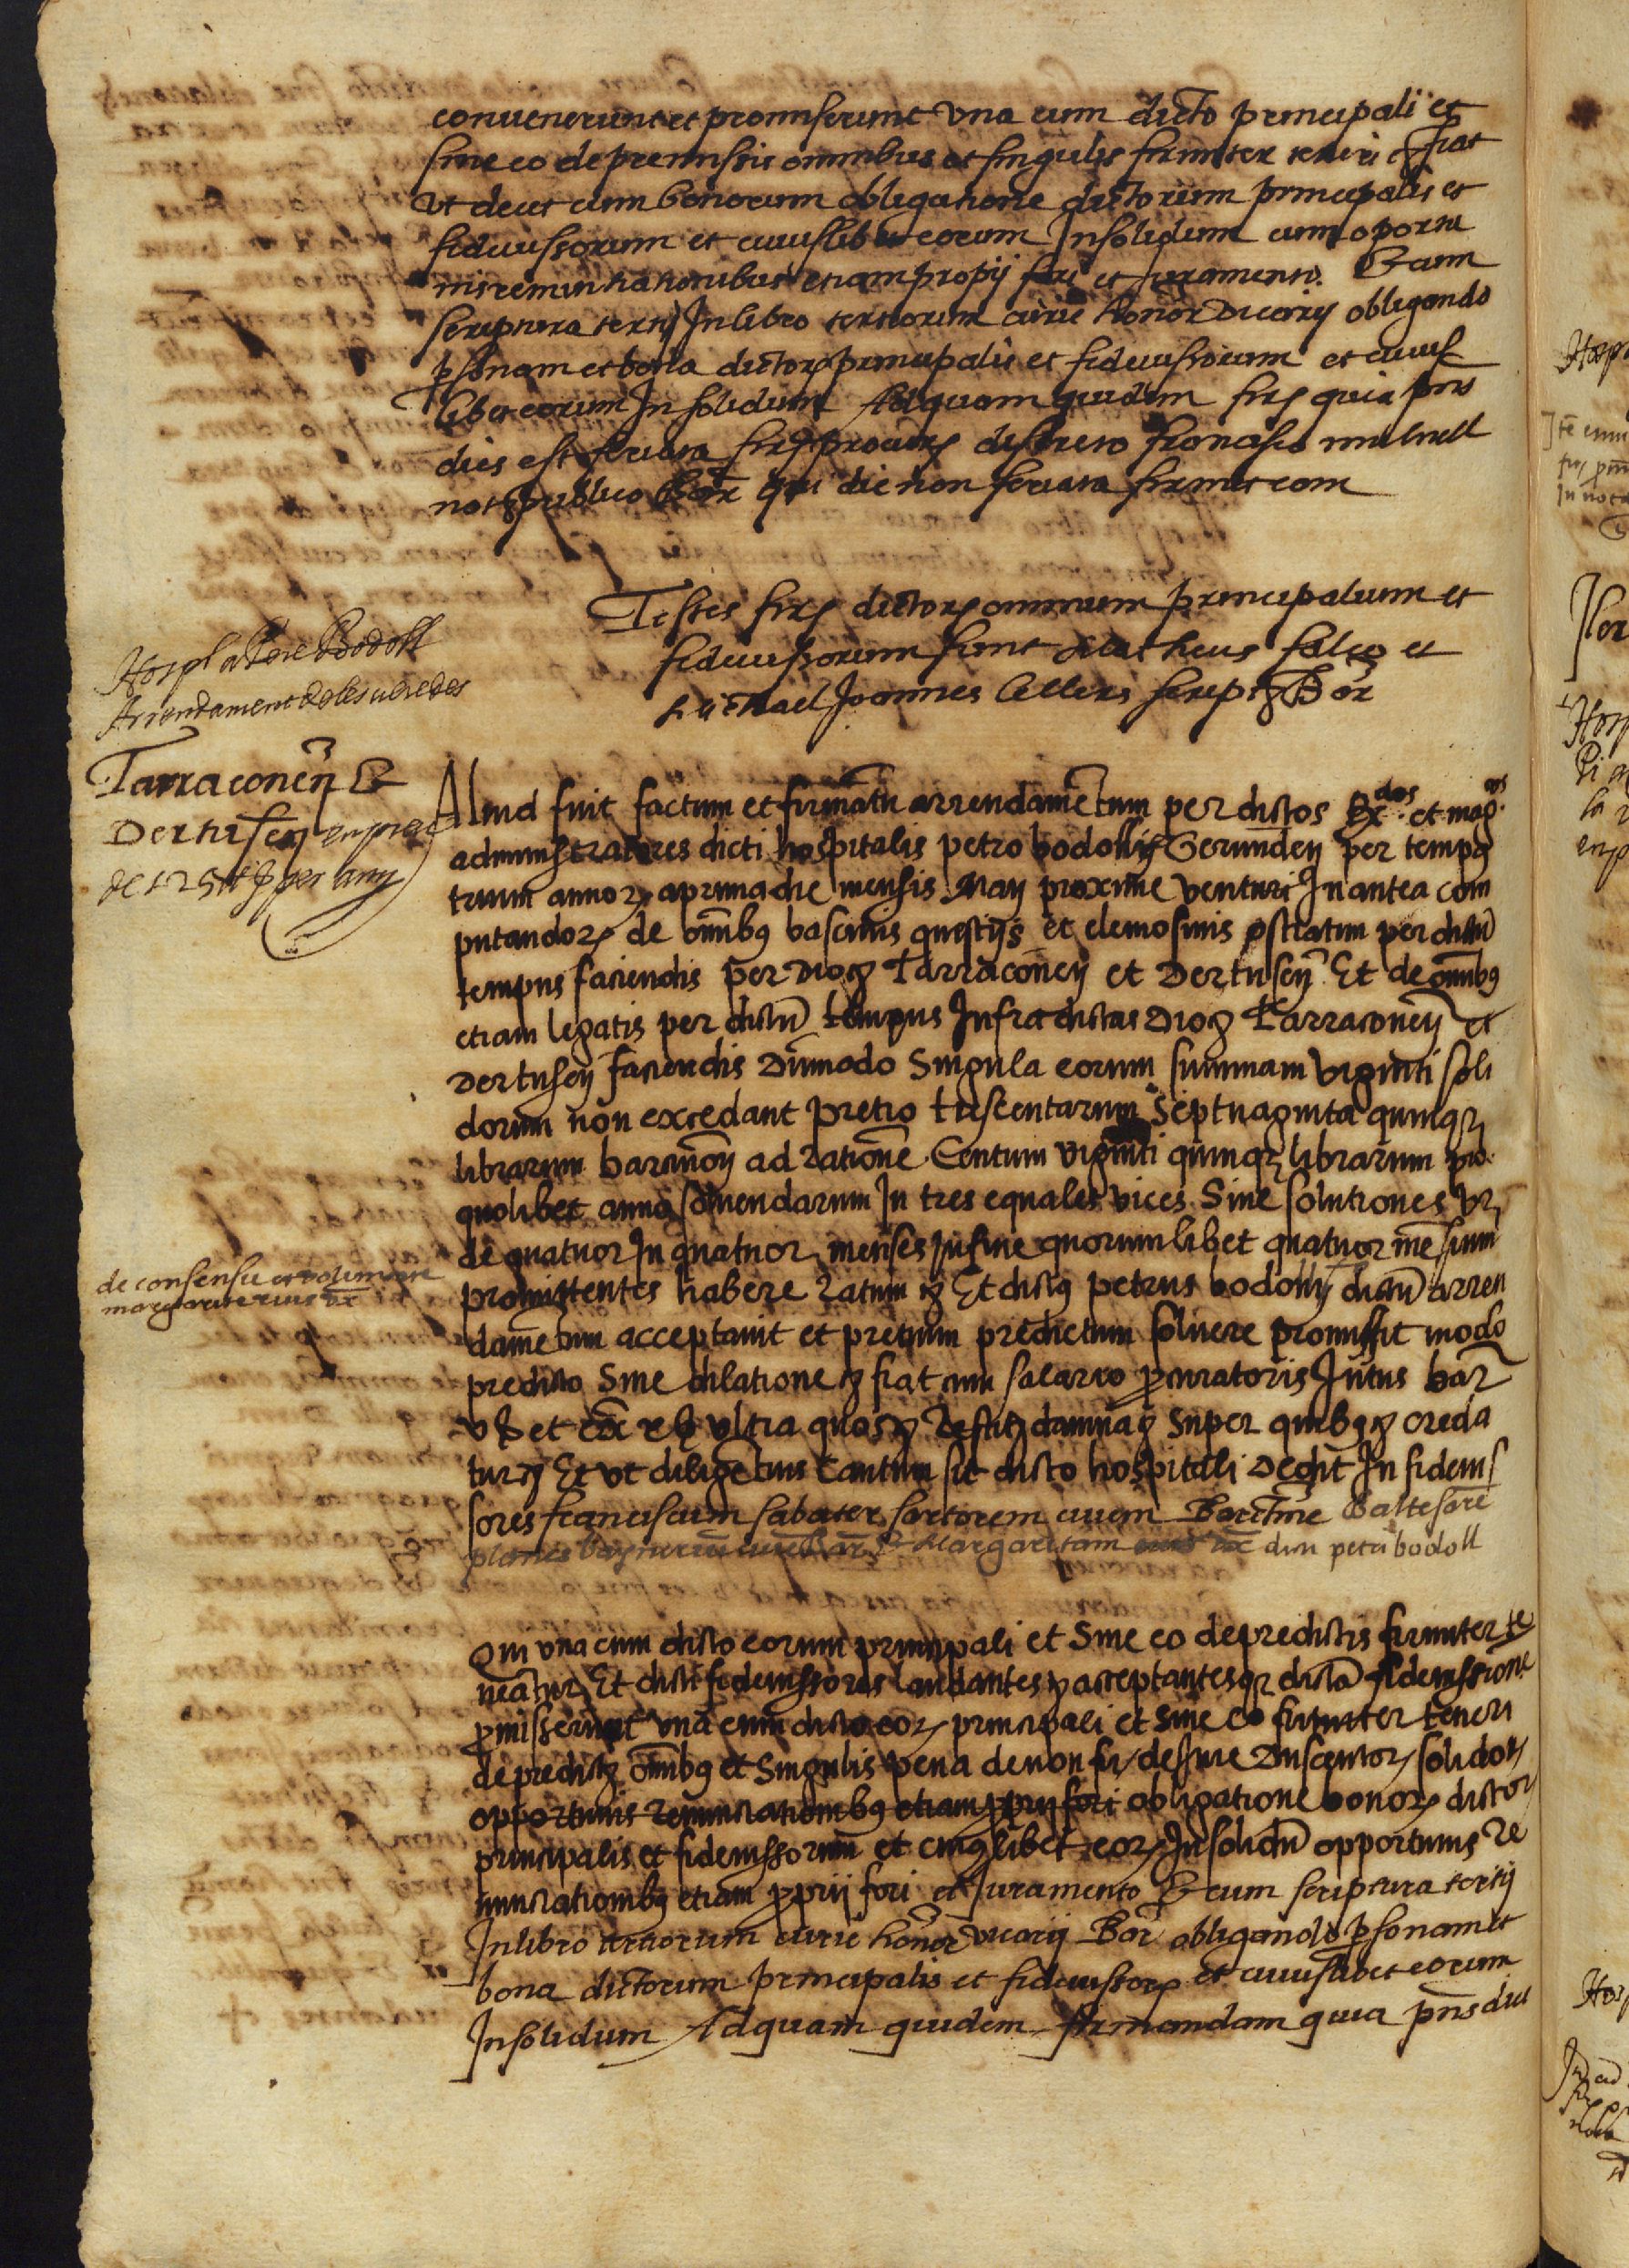 conuenerunt et promiserunt vna cum dicto principali et
sine eo de premissis omnibus et singulis firmiter teneri &c fiat
vt decet cum bonorum obligatione dictorum principalis et
fideiussorum et cuiuslibet eorum Insolidum cum oportu
nis renuntiationibus etiam propij fori et Juramento. Et cum
scriptura tertij In libro tertiorum curie honor Vicarij obligando
psonam et bona dictorꝝ principalis et fideiussorum et cuius
libet eorum In solidum Ad quam quidem quia pns
dies est feriata discreto
not publico Bar qui die non feriata
Testes dictorꝝ omnium principalium et
fideiussorum sunt Matheus et
Michael Joannes Cellers Bar
Hospl a Pere Bodoll
Arrendament de les veredes
Tarraconeñ &
Dertuseñ en preu
de 125 ℔ per any
Aliud fuit factum et firmatũ arrendamẽtum per dictos Rdos. et magcos.
administratores dicti hospitalis petro bodolly Gerunden per tempꝰ
trium annorꝝ a prima die mensis Maij proxime venturi In antea com
putandorꝝ de omĩbꝰ bascinis questijs et elemosinis ostiatim per dictũ
tempus faciendis per Dioc Tarraconeñ et Dertuseñ Et de omĩbꝰ
etiam legatis per dictũ tempus Infra dictas Dioc Tarraconeñ et
Dertuseñ faciendis Dũmodo Singula eorum summam viginti soli
dorum non excedant pretio trescentarum Septuaginta quinqꝫ
librarum barcinoñ ad rationẽ Centum viginti quinqꝫ librarum pro
quolibet anno soluendarum In tres equales vices Siue solutiones vꝫ
de quatuor In quatuor menses In fine quorumlibet quatuor mẽsium
promittentes habere ratum &c Et dictꝰ petrus bodolly dictũ arren
damẽtum acceptauit et pretium predictum soluere promissit modo
predicto Sine dilatione &c fiat cum salario ꝓcuratoris Intus bar
et ultra quos &c restitꝫ damna &c super quibꝰ &c creda
tur &c Et vt diligẽtius cautum sit dicto hospitali Dedit In fideius
sores franciscum sabater sartorem ciuem Barcĩne Baltesarẽ
Margaritam vx dicti petri bodoll
de consensu et voluntate
Qui vna cum dicto eorum principali et Sine eo de predictis firmiter te
neãtur Et dicti fideiussores laudantes &c acceptantesqꝫ dictã fideiussionẽ
ꝓmisserunt vna cum dicto eorꝝ principali et sine eo firmiter teneri
de predictis omĩbꝰ et Singulis pena de non fir de fine Duscentorꝝ solidorꝝ
opportunis renunciationibꝰ etiam ꝓprij fori obligatione bonorꝝ dictorꝝ
principalis et fideiussorum et cuiꝰlibet eorꝝ In solidũ opportunis re
nunciationibꝰ etiam ꝓprij fori et Juramento Et cum scriptura tertij
In libro tertiorum curie honor vicarij Bar obligando psonam et
bona dictorum principalis et fideiussorꝝ et cuiuslibet eorum
Insolidum Ad quam quidem firmandam quia pns dies